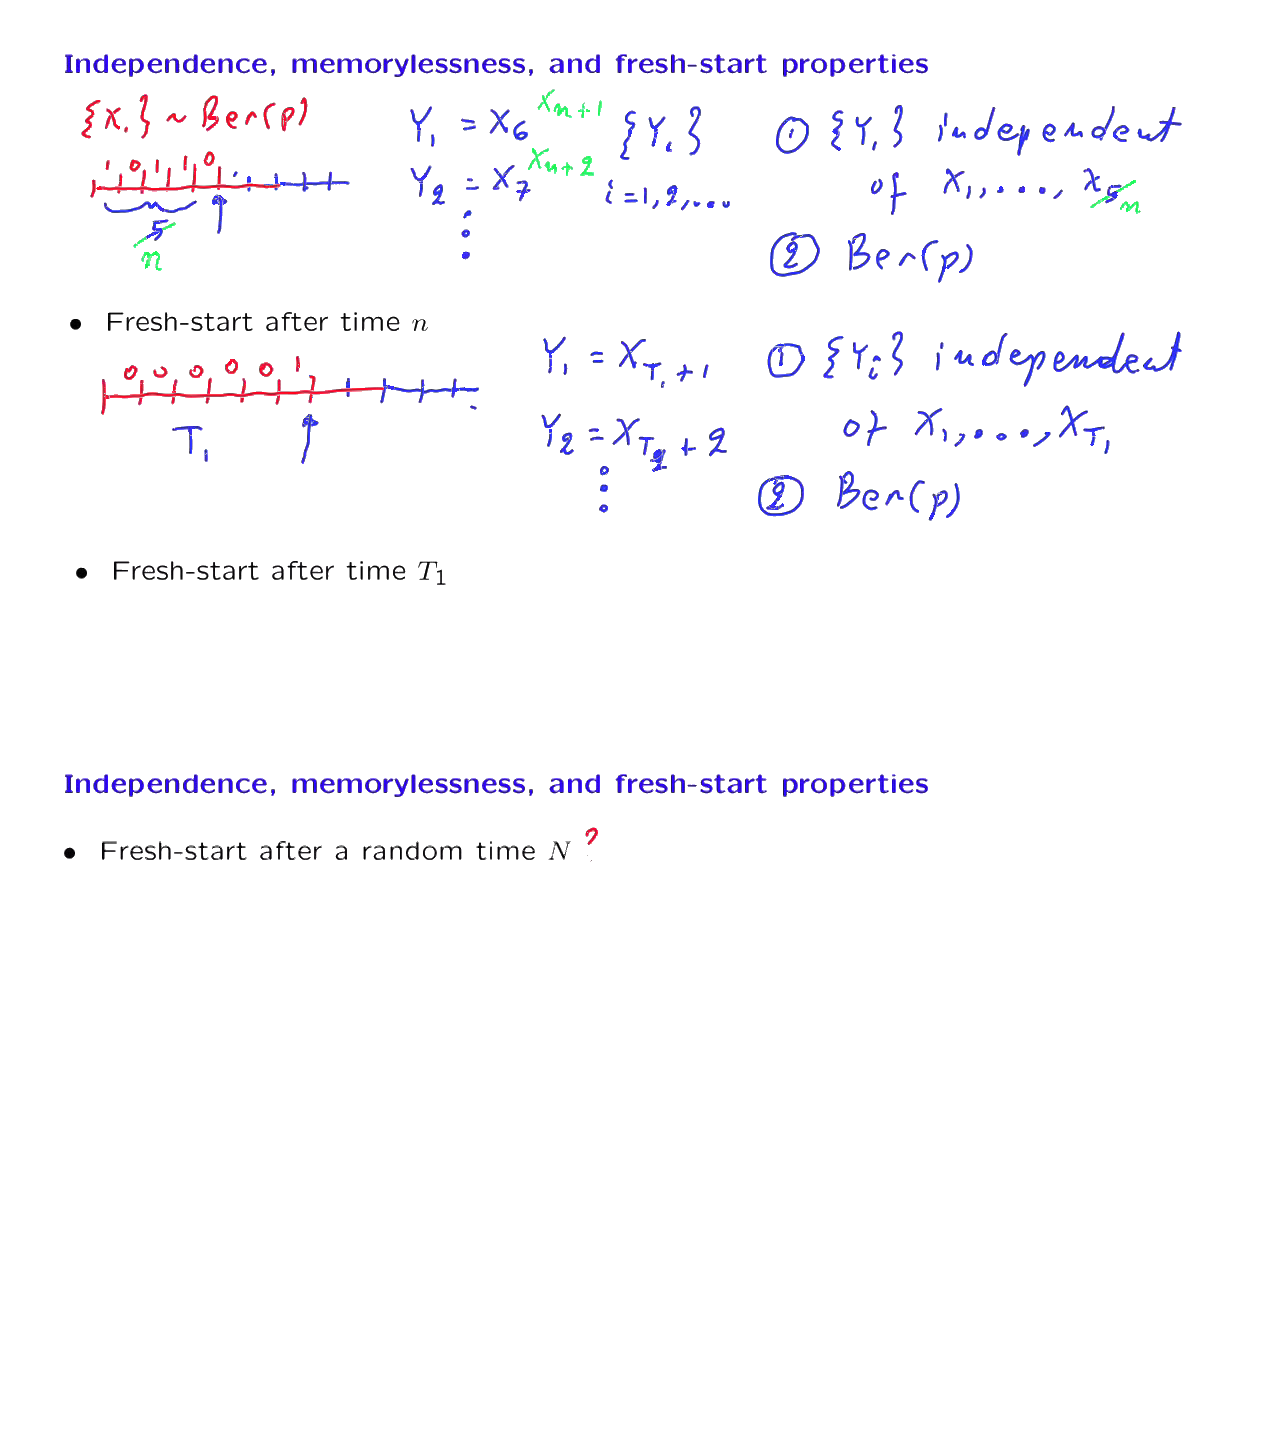 Independence, memorylessness, and fresh-start properties
{X_i} ~ Ber(p)
1 0 1 1 0
5 n
Y_1 = X_6 X_{n+1}
Y_2 = X_7 X_{n+2}
⋮
{Y_i}
i = 1, 2, ...
① {Y_i} independent
of X_1, ..., X_5 n
② Ber(p)
• Fresh-start after time n
0 0 0 0 0 1
T_1
Y_1 = X_{T_1 + 1}
Y_2 = X_{T_2 + 2}
⋮
① {Y_i} independent
of X_1, ..., X_{T_1}
② Ber(p)
• Fresh-start after time T_1
Independence, memorylessness, and fresh-start properties
• Fresh-start after a random time N ?